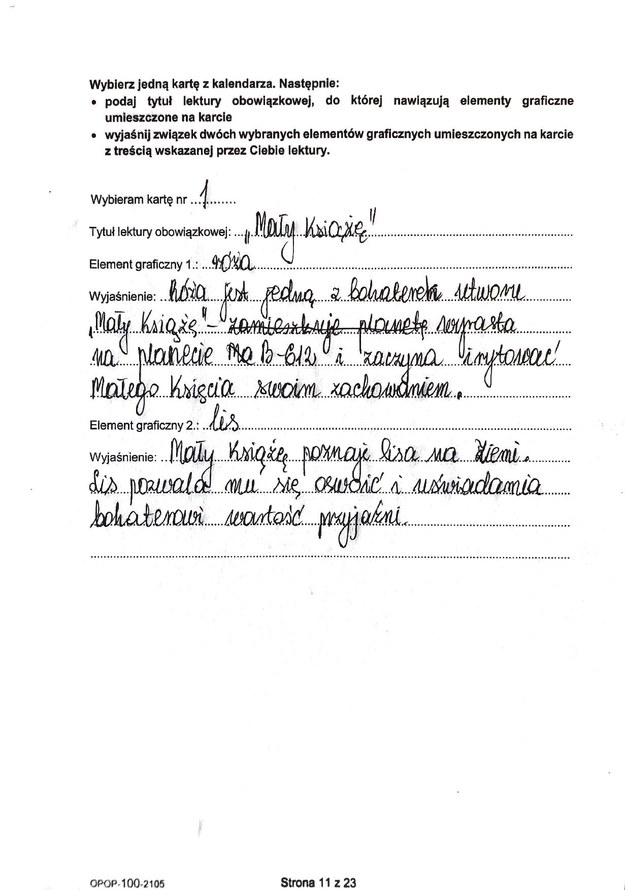 Wybierz jedną kartę z kalendarza. Następnie:
• podaj tytuł lektury obowiązkowej, do której nawiązują elementy graficzne
umieszczone na karcie
• wyjaśnij związek dwóch wybranych elementów graficznych umieszczonych na karcie
z treścią wskazanej przez Ciebie lektury.
Wybieram kartę nr ...1........
Tytuł lektury obowiązkowej: „Mały Książę"
Element graficzny 1.: róża
Wyjaśnienie: Róża jest jedną z bohaterek utworu
„Mały Książę" – zamieszkuje planetę wyrasta
na planecie B-612 i zaczyna irytować
Małego Księcia swoim zachowaniem.
Element graficzny 2.: lis
Wyjaśnienie: Mały Książę poznaje lisa na Ziemi.
Lis pozwala mu się oswoić i uświadamia
bohaterowi wartość przyjaźni.
OPOP-100-2105 Strona 11 z 23